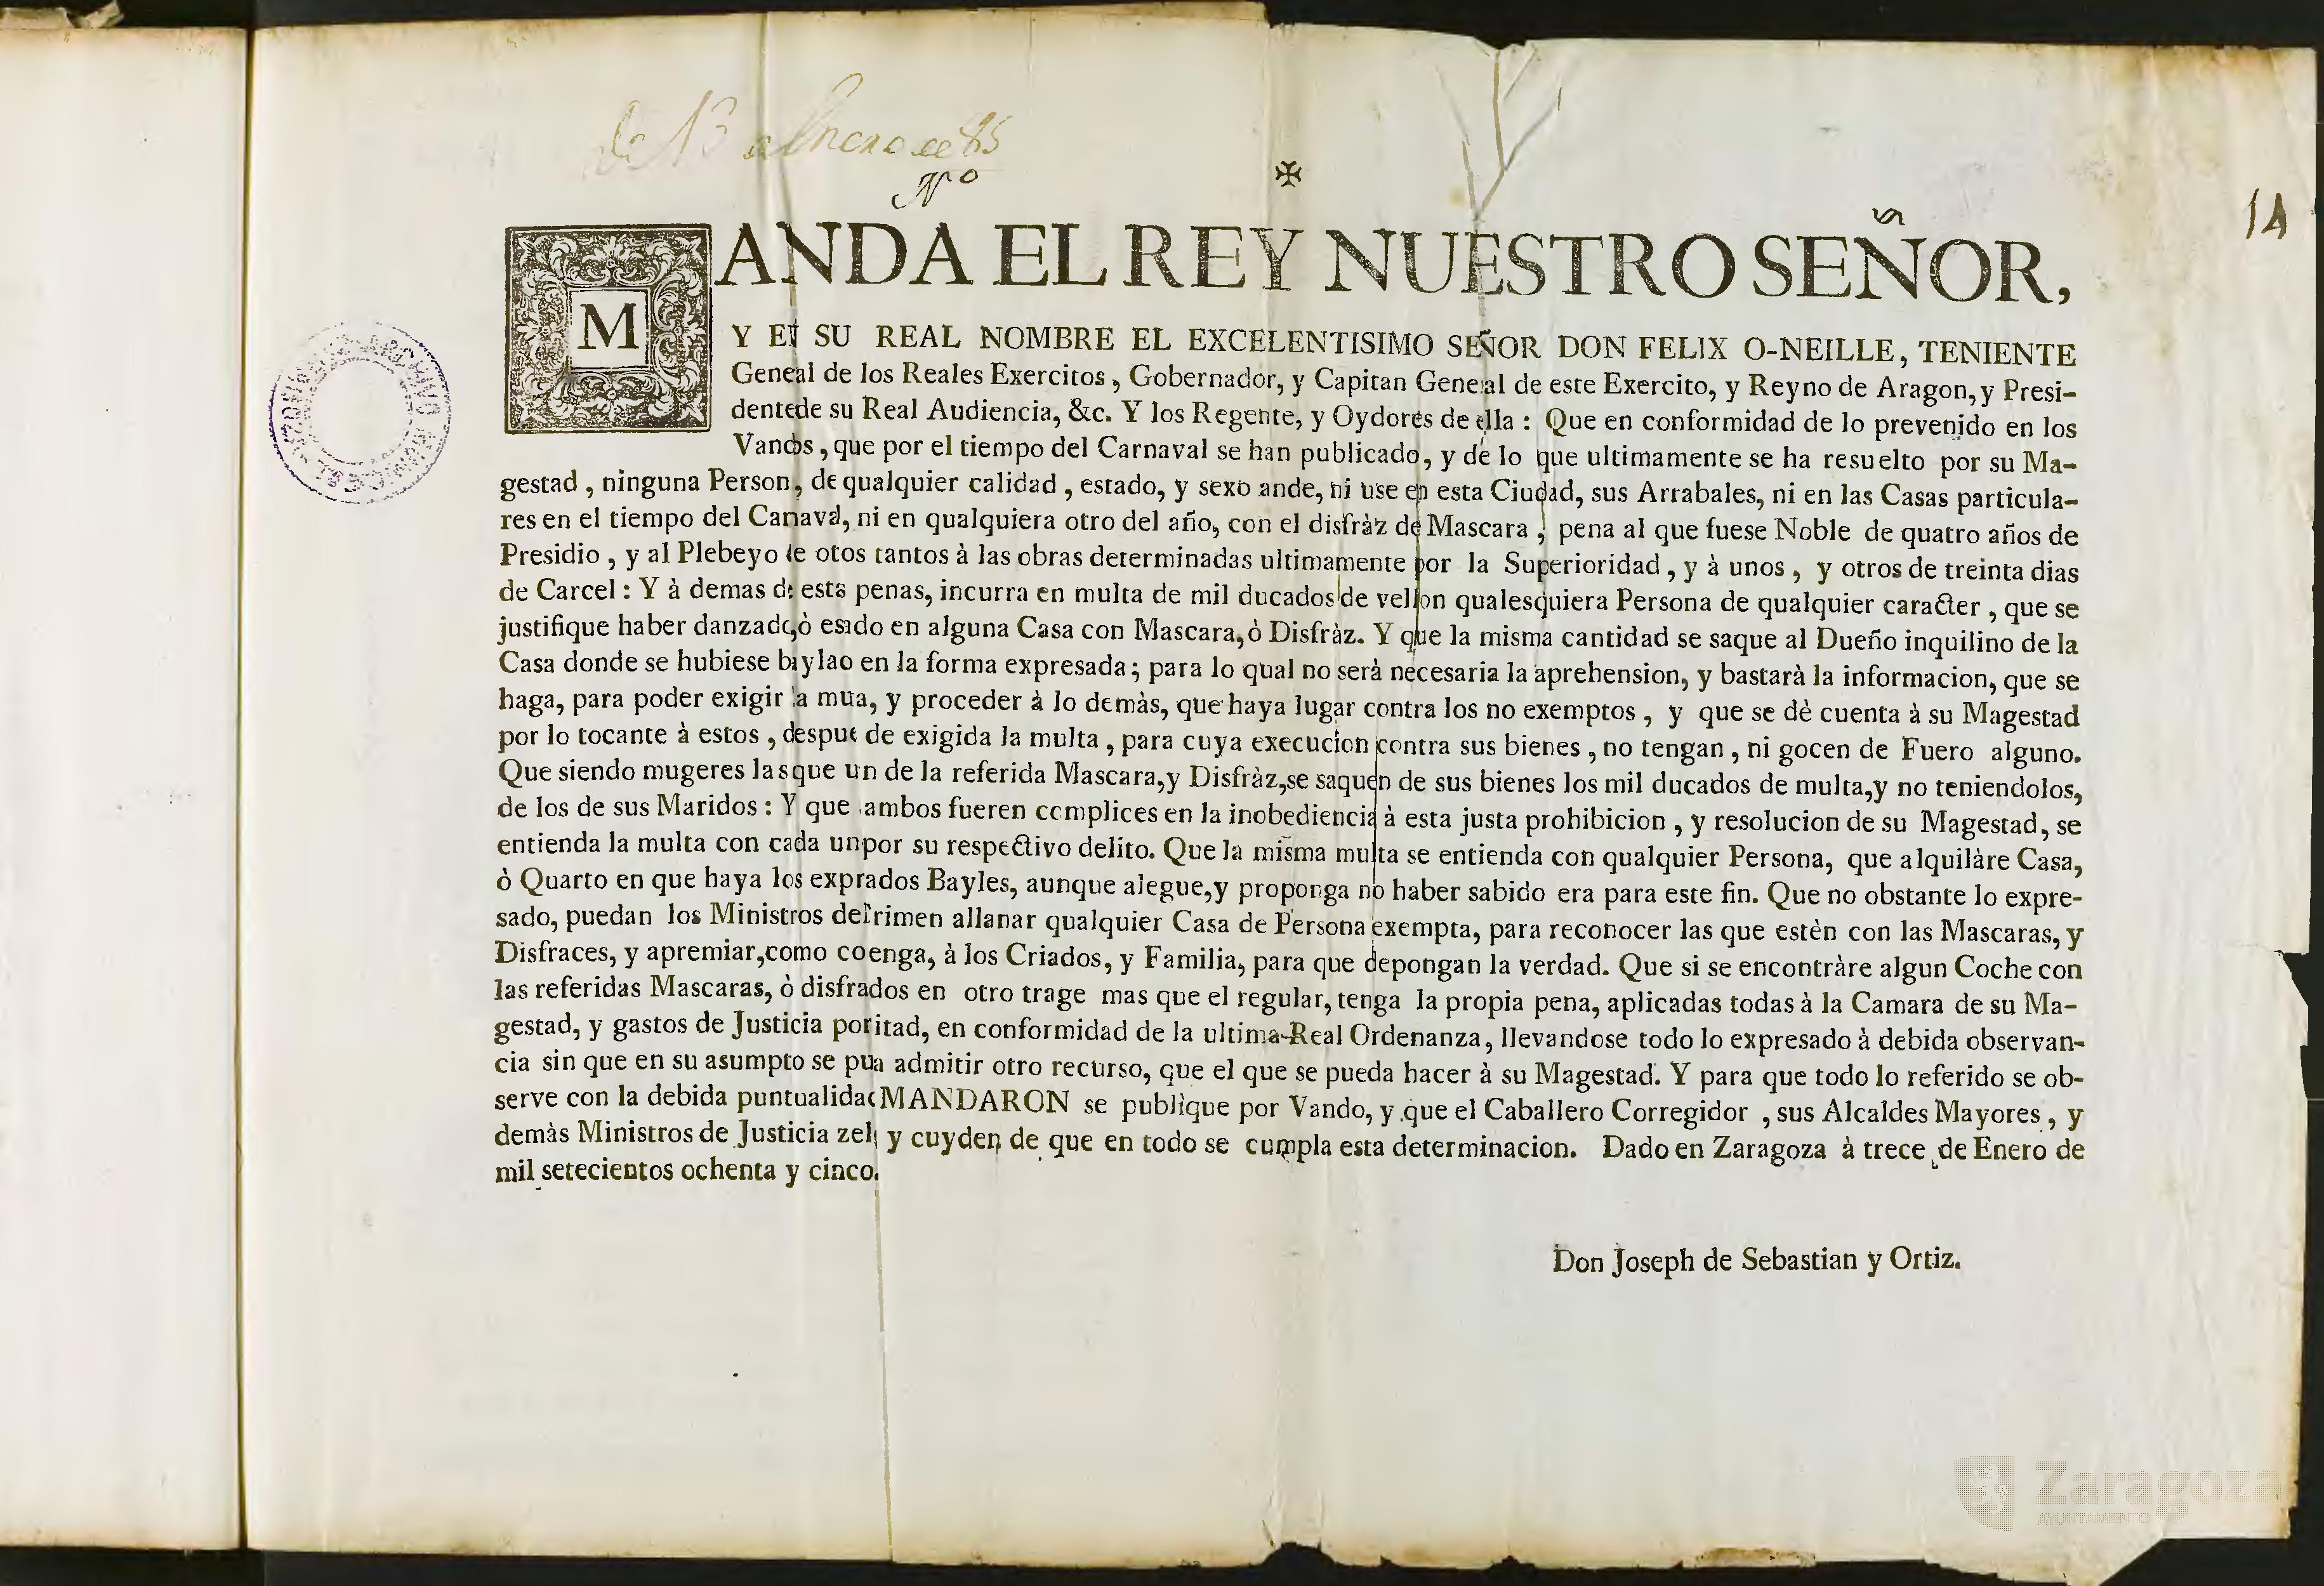 de 13 de Enero de 85
Nº
✠
14
MANDA EL REY NUESTRO SEÑOR,
Y EN SU REAL NOMBRE EL EXCELENTISIMO SEÑOR DON FELIX O-NEILLE, TENIENTE
Geneal de los Reales Exercitos, Gobernador, y Capitan General de este Exercito, y Reyno de Aragon, y Presi-
dentede su Real Audiencia, &c. Y los Regente, y Oydores de ella: Que en conformidad de lo prevenido en los
Vandos, que por el tiempo del Carnaval se han publicado, y de lo que ultimamente se ha resuelto por su Ma-
gestad, ninguna Person, de qualquier calidad, estado, y sexo ande, ni use en esta Ciudad, sus Arrabales, ni en las Casas particula-
res en el tiempo del Canaval, ni en qualquiera otro del año, con el disfràz de Mascara, pena al que fuese Noble de quatro años de
Presidio, y al Plebeyo de otos tantos à las obras determinadas ultimamente por la Superioridad, y à unos, y otros de treinta dias
de Carcel: Y à demas de estas penas, incurra en multa de mil ducados de vellon qualesquiera Persona de qualquier caracter, que se
justifique haber danzado, ò esado en alguna Casa con Mascara, ò Disfràz. Y que la misma cantidad se saque al Dueño inquilino de la
Casa donde se hubiese baylao en la forma expresada; para lo qual no serà necesaria la aprehension, y bastarà la informacion, que se
haga, para poder exigir la mua, y proceder à lo demàs, que haya lugar contra los no exemptos, y que se dè cuenta à su Magestad
por lo tocante à estos, despue de exigida la multa, para cuya execucion contra sus bienes, no tengan, ni gocen de Fuero alguno.
Que siendo mugeres las que un de la referida Mascara, y Disfràz, se saquen de sus bienes los mil ducados de multa, y no teniendolos,
de los de sus Maridos: Y que ambos fueren complices en la inobediencia à esta justa prohibicion, y resolucion de su Magestad, se
entienda la multa con cada un por su respectivo delito. Que la misma multa se entienda con qualquier Persona, que alquilàre Casa,
ò Quarto en que haya los exprados Bayles, aunque alegue, y proponga no haber sabido era para este fin. Que no obstante lo expre-
sado, puedan los Ministros del rimen allanar qualquier Casa de Persona exempta, para reconocer las que estèn con las Mascaras, y
Disfraces, y apremiar, como coenga, à los Criados, y Familia, para que depongan la verdad. Que si se encontràre algun Coche con
las referidas Mascaras, ò disfrados en otro trage mas que el regular, tenga la propia pena, aplicadas todas à la Camara de su Ma-
gestad, y gastos de Justicia por itad, en conformidad de la ultima Real Ordenanza, llevandose todo lo expresado à debida observan-
cia sin que en su asumpto se pua admitir otro recurso, que el que se pueda hacer à su Magestad. Y para que todo lo referido se ob-
serve con la debida puntualidad MANDARON se publique por Vando, y que el Caballero Corregidor, sus Alcaldes Mayores, y
demàs Ministros de Justicia zel y cuyden de que en todo se cumpla esta determinacion. Dado en Zaragoza à trece de Enero de
mil setecientos ochenta y cinco.
Don Joseph de Sebastian y Ortiz.
Zaragoza
AYUNTAMIENTO